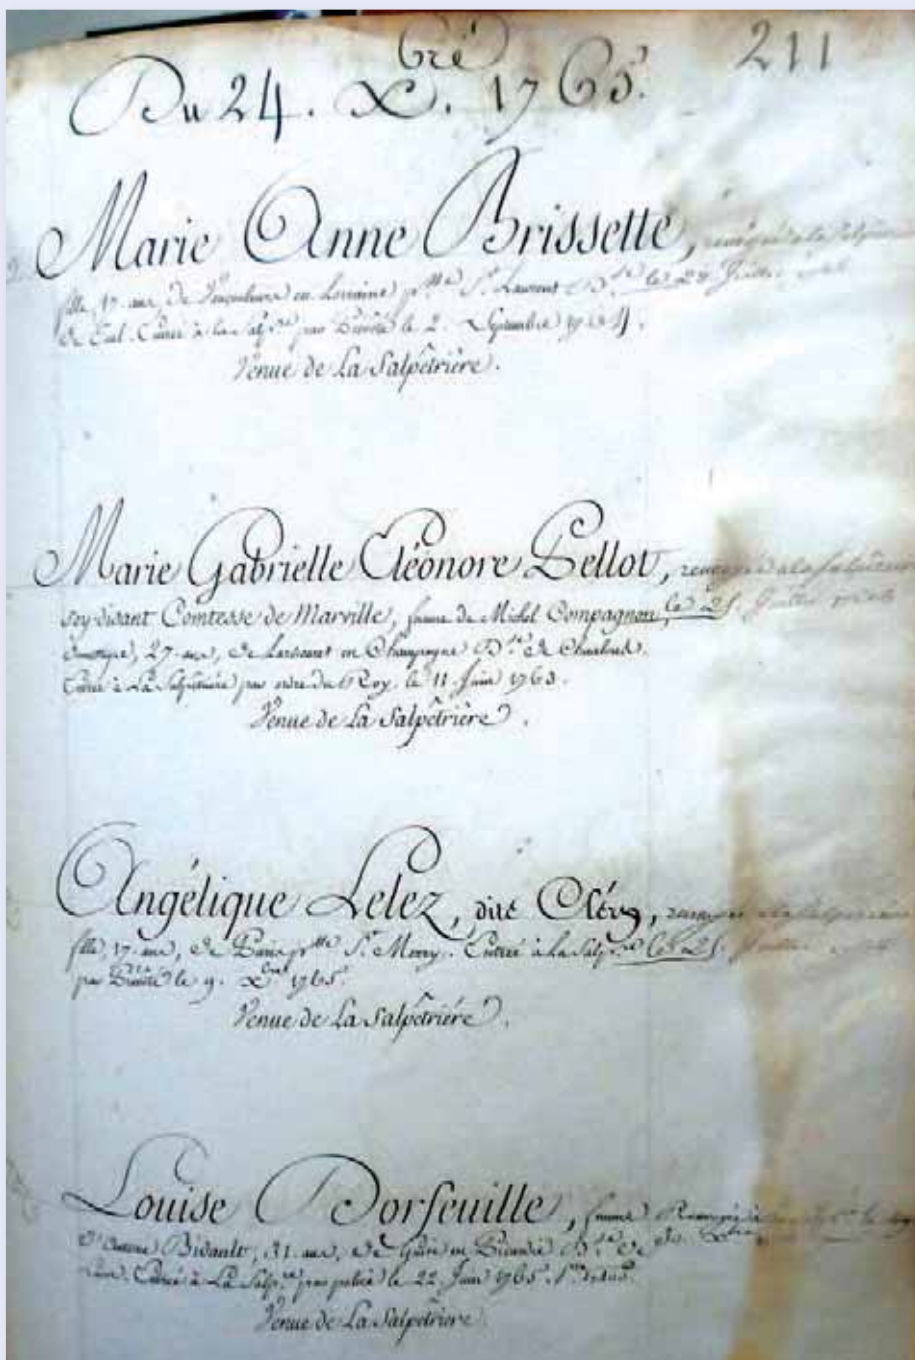 211
Du 24. X.bré 1765.
Marie Anne Brissette, renvoyée a la Salpêtrière
fille, 17 ans, de Vaucouleurs en Lorraine p.sse S.t Laurent D.se le 25 Juillet
de Toul. Entrée à la Salp.re par Prévôté le 2. Septembre 1764.
Venue de La Salpêtrière.
Marie Gabrielle Eléonore Pellot, renvoyée a la Salpêtrière
soy disant Comtesse de Marville, femme de Michel Compagnon, le 25 Juillet
27 ans, de en Champagne D.se de
Entrée à La Salpêtrière par ordre du Roy, le 11 Juin 1763.
Venue de La Salpêtrière.
Angélique Lelez, dite Cléry, renvoyée a la Salpêtrière
fille, 17 ans, de Paris p.sse S.t Merry. Entrée à la Salp.re le 25 Juillet
par le 9. X.bre 1765.
Venue de La Salpêtriére.
Louise Dorfeuille, femme Renvoyée à
d'Antoine Bidault, 31 ans, de en Picardie D.se de
Entrée à La Salp.re par police le 22 Juin 1765.
Venue de La Salpêtriére